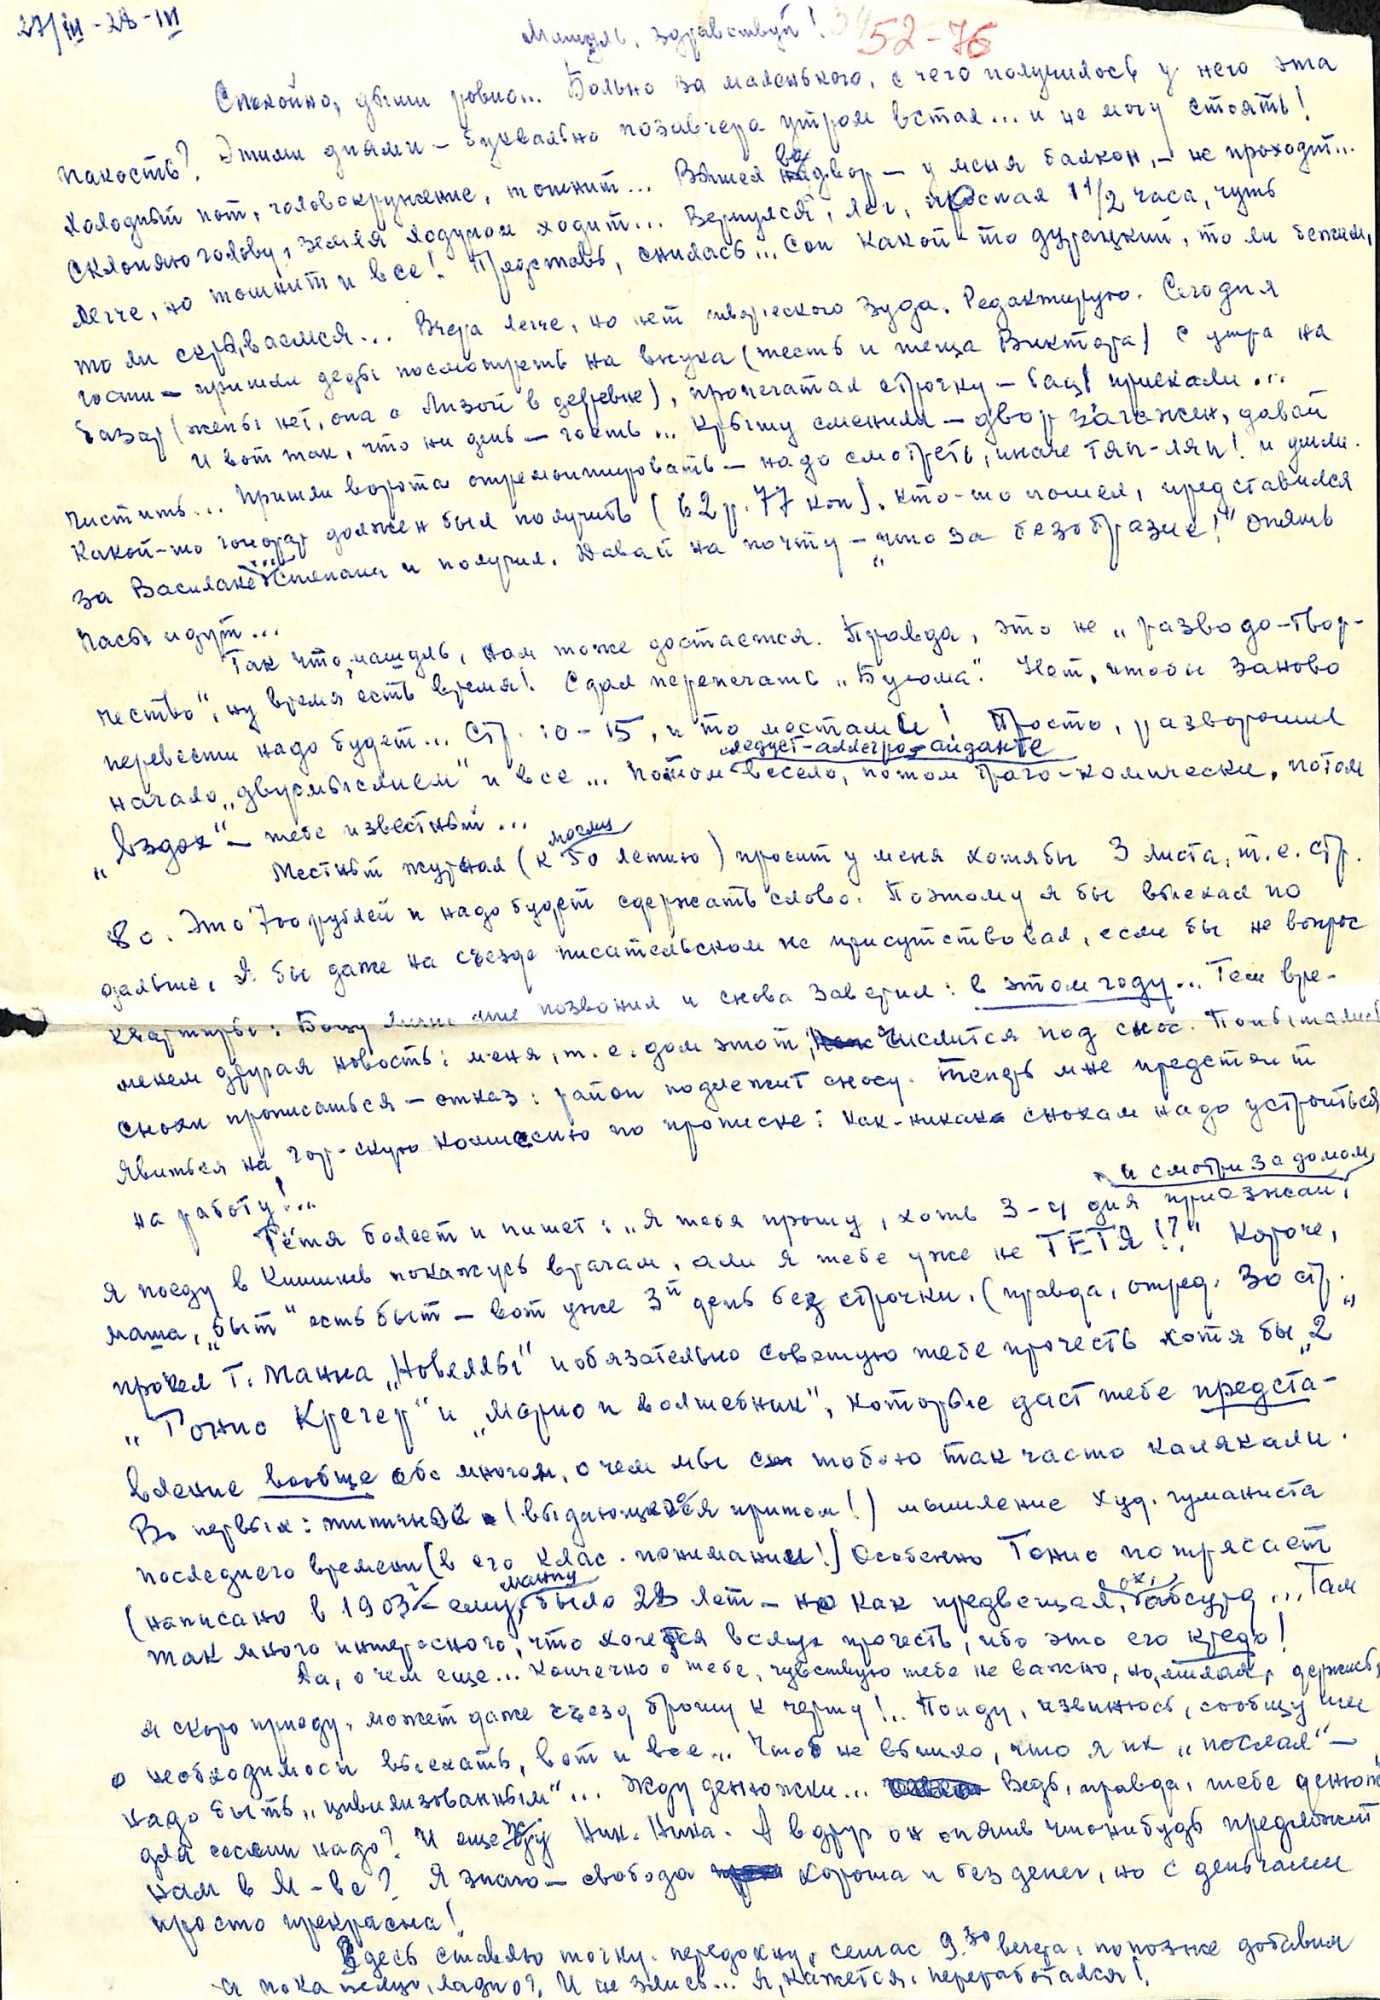 27/III - 28 - III
Машуль, здравствуй! 34 52-76
Спокойно, дыши ровно... Больно за маленького, с чего получилось у него эта
пакость? Этими днями - буквально позавчера утром встал... и не могу стоять!
Холодный пот, головокружение, тошнит... Вышел на двор - у меня балкон, - не проходит...
Склоняю голову, земля ходуном ходит... Вернулся, лег, проспал 1 1/2 часа, чуть
легче, но тошнит и все! Представь, снилась... Сон какой-то дурацкий, то ли бежим,
то ли скрываемся... Вчера легче, но нет творческого зуда. Редактирую. Сегодня
гости - пришли деды посмотреть на внука (тесть и теща Виктора) с утра на
базар (жены нет, она с Лизой в деревне), пропечатал строчку - бац! приехали...
И вот так, что ни день - гость... Крышу сменили - двор загажен, давай
чистить... Пришли ворота отремонтировать - надо смотреть, иначе тяп-ляп! и ушли.
Какой-то гонорар должен был получить (62 р. 77 коп). Кто-то пошел, представился
за Василаке Степана и получил. Давай на почту - "что за безобразие!" Опять
часы идут...
Так что, машуль, нам тоже достается. Правда, это не "разводо-твор-
чество", ну время есть время! Сдал перепечать "Бугома". Нет, чтобы заново
перевести надо будет... Стр. 10-15, и то местами! Просто, разворошил
начало "двумыслием" и все... Потом следует-аллегро-анданте весело, потом траго-комически, потом
"вздох" - тебе известный...
Местный журнал (к моему 50 летию) просит у меня хотя бы 3 листа, т.е. стр.
80. Это 700 рублей и надо будет сдержать слово. Поэтому я бы выехал по
дальше, я бы даже на съезде писательском не присутствовал, если бы не вопрос
квартиры: позвонил и снова заверил: в этом году... Тем вре-
менем другая новость: меня, т.е. дом этот, числится под снос. Попытались
снохи прописаться - отказ: район подлежит сносу. Теперь мне предстоит
явиться на гор-скую комиссию по прописке: как-никак снохам надо устроиться
на работу!...
Тётя болеет и пишет: "Я тебя прошу, хоть 3-4 дня приезжай, и смотри за домом,
я поеду в Кишинев покажусь врачам, али я тебе уже не ТЕТЯ!?" Короче,
маша, "быт" есть быт - вот уже 3й день без строчки. (правда, отред. 30 стр.
прочел Т. Манна "Новеллы" и обязательно советую тебе прочесть хотя бы "2"
"Тонио Крегер" и "Марио и волшебник", которые даст тебе предста-
вление вообще обо многом, о чем мы с тобою так часто калякали.
Во первых: типичное (выдающееся притом!) мышление худ. гуманиста
последнего времени (в его клас. понимании!) Особенно Тонио потрясает
(написано в 1903 г - ему, манну было 28 лет - но как предвещал, ох, абсурд... Там
так много интересного, что хочется вслух прочесть, ибо это его кредо!
Да, о чем еще... Конечно о тебе, чувствую тебе не важно, но, милая, держись,
я скоро приеду, может даже съезд брошу к черту!.. Пойду, извинюсь, сообщу им
о необходимости выехать, вот и все... Чтоб не вышло, что я их "послал" -
надо быть "цивилизованным"... Жду денюжки... Ведь, правда, тебе денюж
для сессии надо? И еще жду Ник. Ника. А вдруг он опять чтонибудь предложит
нам в М-ве? Я знаю - свобода хороша и без денег, но с деньгами
просто прекрасна!
Здесь ставлю точку. передохну, сейчас 9.30 вечера, попозже добавлю
а пока целую, ладно? И не злись... Я, кажется, переработался!